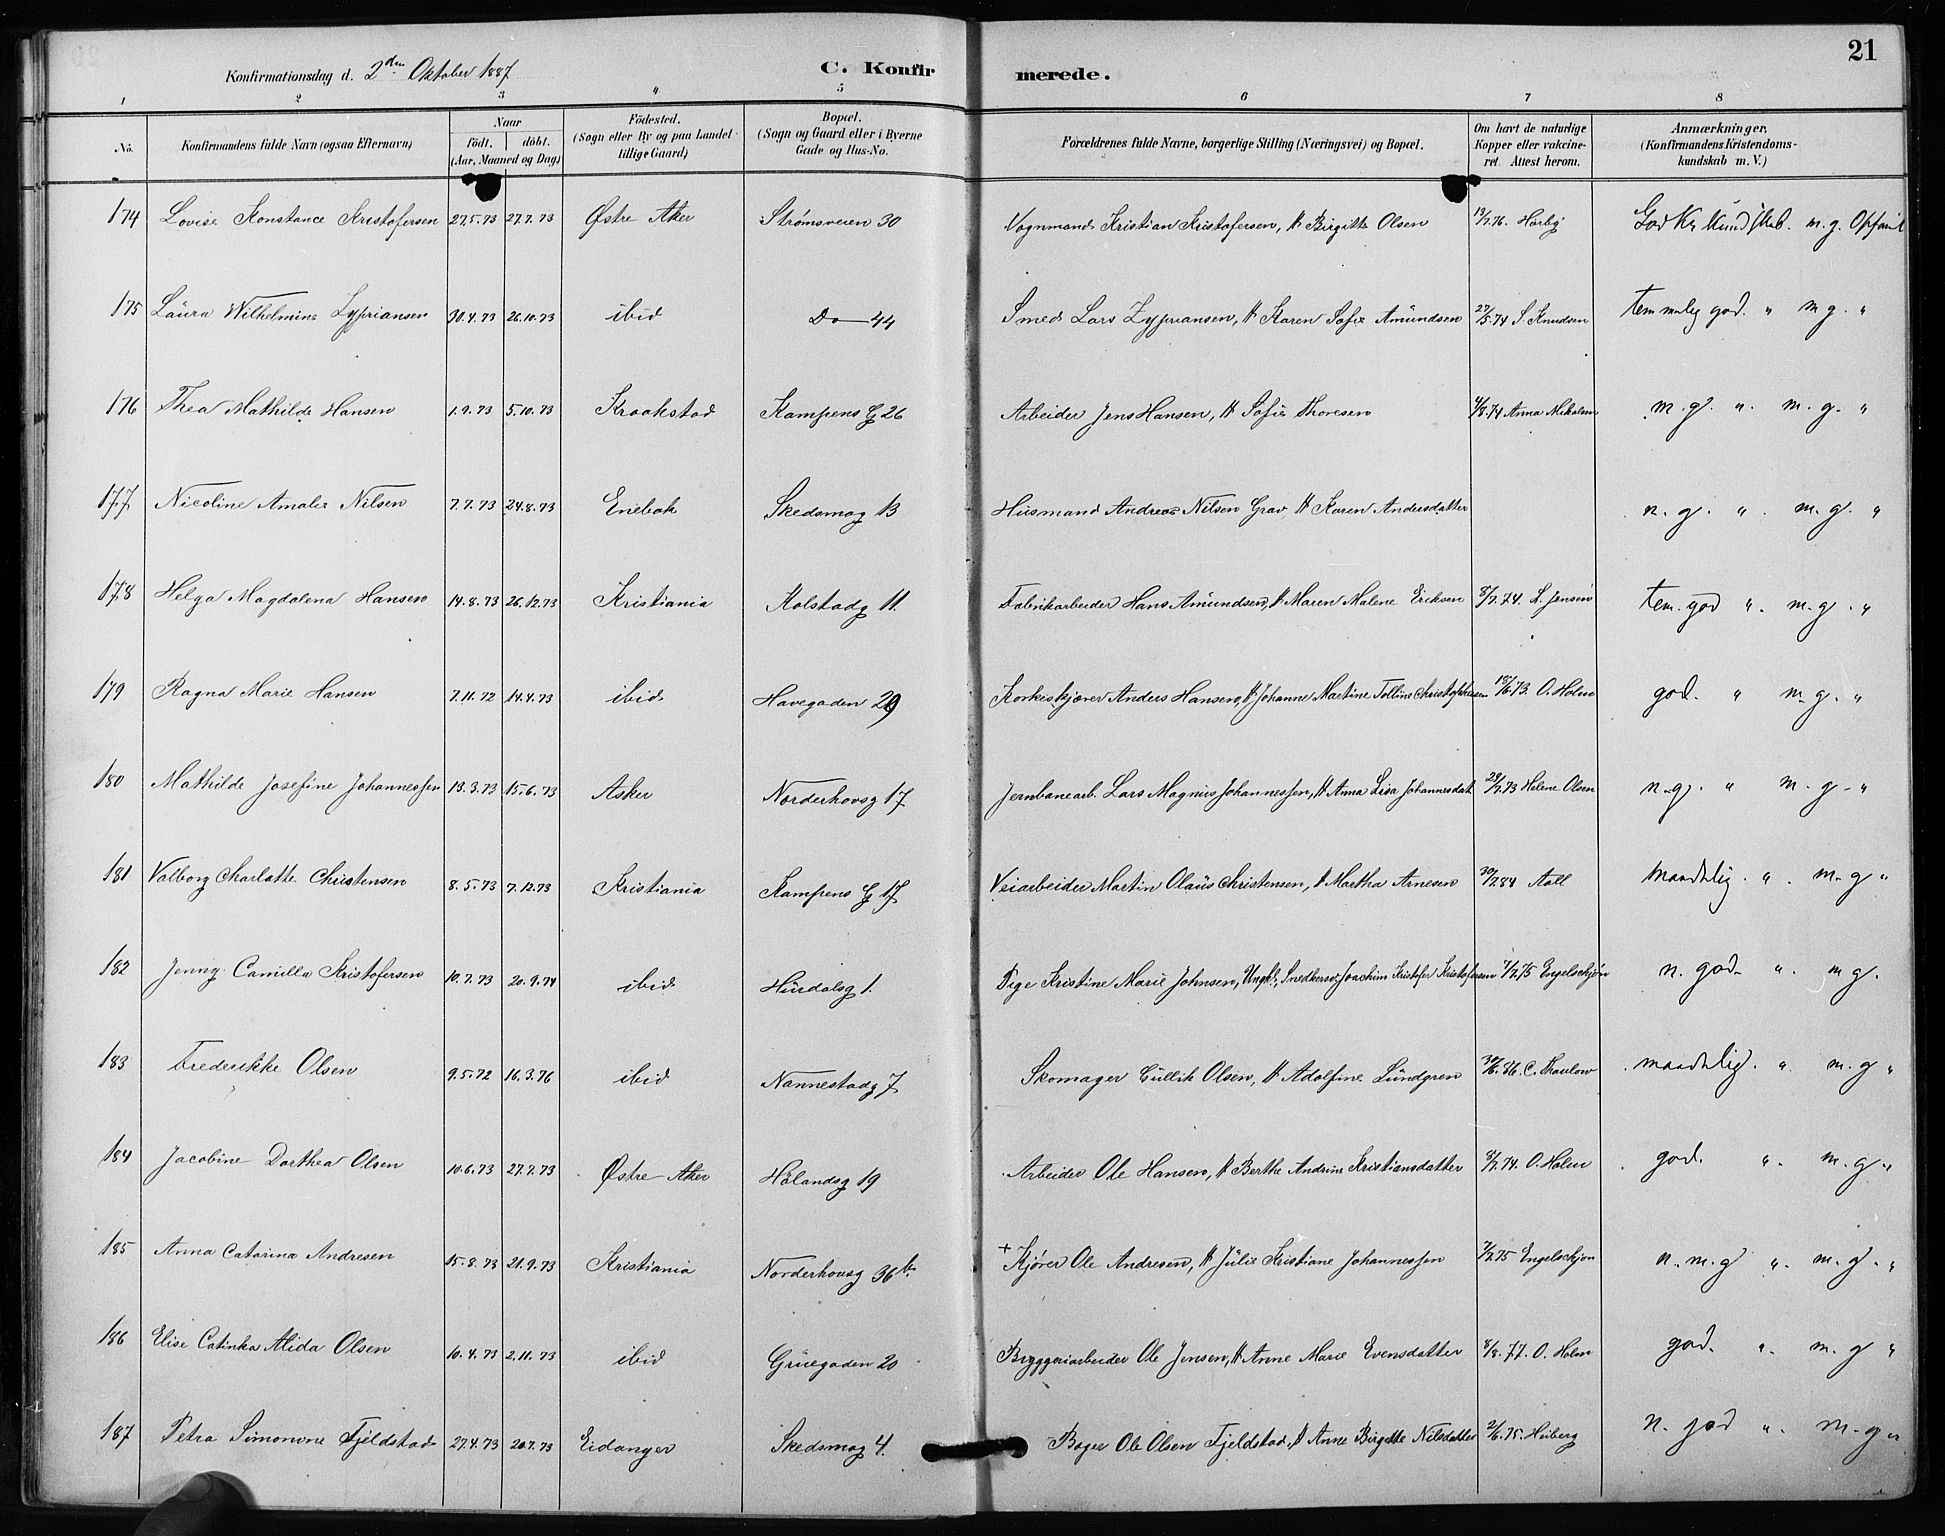 21
Konfirmationsdag d. 2den Oktober 1887 C. Konfirmerede.
1 2 3 4 5 6 7 8
No. Konfirmandens fulde Navn (ogsaa Efternavn) Naar födt. döbt. (Aar, Maaned og Dag) Födested. (Sogn eller By og paa Landet tillige Gaard) Bopæl. (Sogn og Gaard eller i Byerne Gade og Hus-No. Forældrenes fulde Navne, borgerlige Stilling (Næringsvei) og Bopæl. Om havt de naturlige Kopper eller vakcineret. Attest herom. Anmærkninger. (Konfirmandens Kristendomskundskab m. V.)
174 Lovise Konstance Kristofersen 27.5.73 27.7.73 Østre Aker Strømsveien 30 Vognmand Kristian Kristofersen, H Birgitte Olsen 13/7.76. Harbj God Kr. kundskab. m. g.
175 Laura Wilhelmine Zypriansen 30.4.73 26.10.73 ibid Do 44 Smed Lars Zypriansen, H Karen Sofie Amundsen 27/5.74 S Knudsen temmelig god. " m g. "
176 Thea Mathilde Hansen 1.9.73 5.10.73 Kraakstad Kampens G 26 Arbeider Jens Hansen, H Sofie Thoresen 4/8.74 Anna Mikalsen m. g. " m. g. "
177 Nicoline Amalie Nilsen 7.7.73 24.8.73 Enebak Skedsmog 13 Husmand Andreas Nilsen Grav, H Karen Andersdatter n. g. " m. g. "
178 Helga Magdalena Hansen 14.8.73 26.12.73 Kristiania Kolstadg 11. Fabrikarbeider Hans Amundsen, H Maren Malene Ericksen 8/7.74. L. Jensen tem. god " m. g. "
179 Ragna Marie Hansen 7.11.72 14.4.73 ibid Havegaden 29 Korkeskjærer Anders Hansen, H Johanne Martine Tolline Christophersen 18/6.73. O. Holm god. " m. g. "
180 Mathilde Josefine Johannessen 13.3.73 15.6.73 Asker Norderhovsg 17 Jernbanearb. Lars Magnus Johannessen, H Anna Lisa Johannesdat. 29/7.73 Helene Olsen n. g. " m. g. "
181 Valborg Charlotte Christensen 8.5.73 7.12.73 Kristiania Kampens G 17 Veiarbeider Martin Olaus Christensen, H Martha Arnesen 30/7.84 Aall maadelig. " m. g "
182 Jenny Camilla Kristofersen 10.7.73 20.9.74 ibid Hurdalsg 1. Pige Kristine Marie Johnsen, Ungk., Snedkersv. Joachim Kristofer Kristofersen 7/7.75 Engelschjøn n. god " m g.
183 Frederikke Olsen 9.5.72 16.3.76 ibid Nannestadg 7 Skomager Gullik Olsen, H Adolfine Lundgren 30/6.86. C. Thaulow maadelig. " m. g "
184 Jacobine Dorthea Olsen 10.6.73 27.7.73 Østre Aker Hølandsg 19 Arbeider Ole Hansen, H Berthe Andrine Kristiansdatter 8/7.74. O. Holm god. " m. g "
185 Anna Catarina Andresen 15.8.73 21.9.73 Kristiania Norderhovsg 36 b. + Kjører Ole Andresen, H Julie Kristiane Johannessen 7/7.75 Engelschjøn n. m. g " m. g. "
186 Elise Catinka Alida Olsen 10.4.73 2.11.73 ibid Gruegaden 20 Bryggeriarbeider Ole Jensen, H Anne Marie Evensdatter 8/8.77. O. Holm god. " m. g "
187 Petra Simonine Fjeldstad 27.4.73 20.7.73 Eidanger Skedsmog 4. Bager Ole Olsen Fjeldstad, H Anne Birgitte Nilsdatter 2/6.75. Heiberg n. god " m. g "